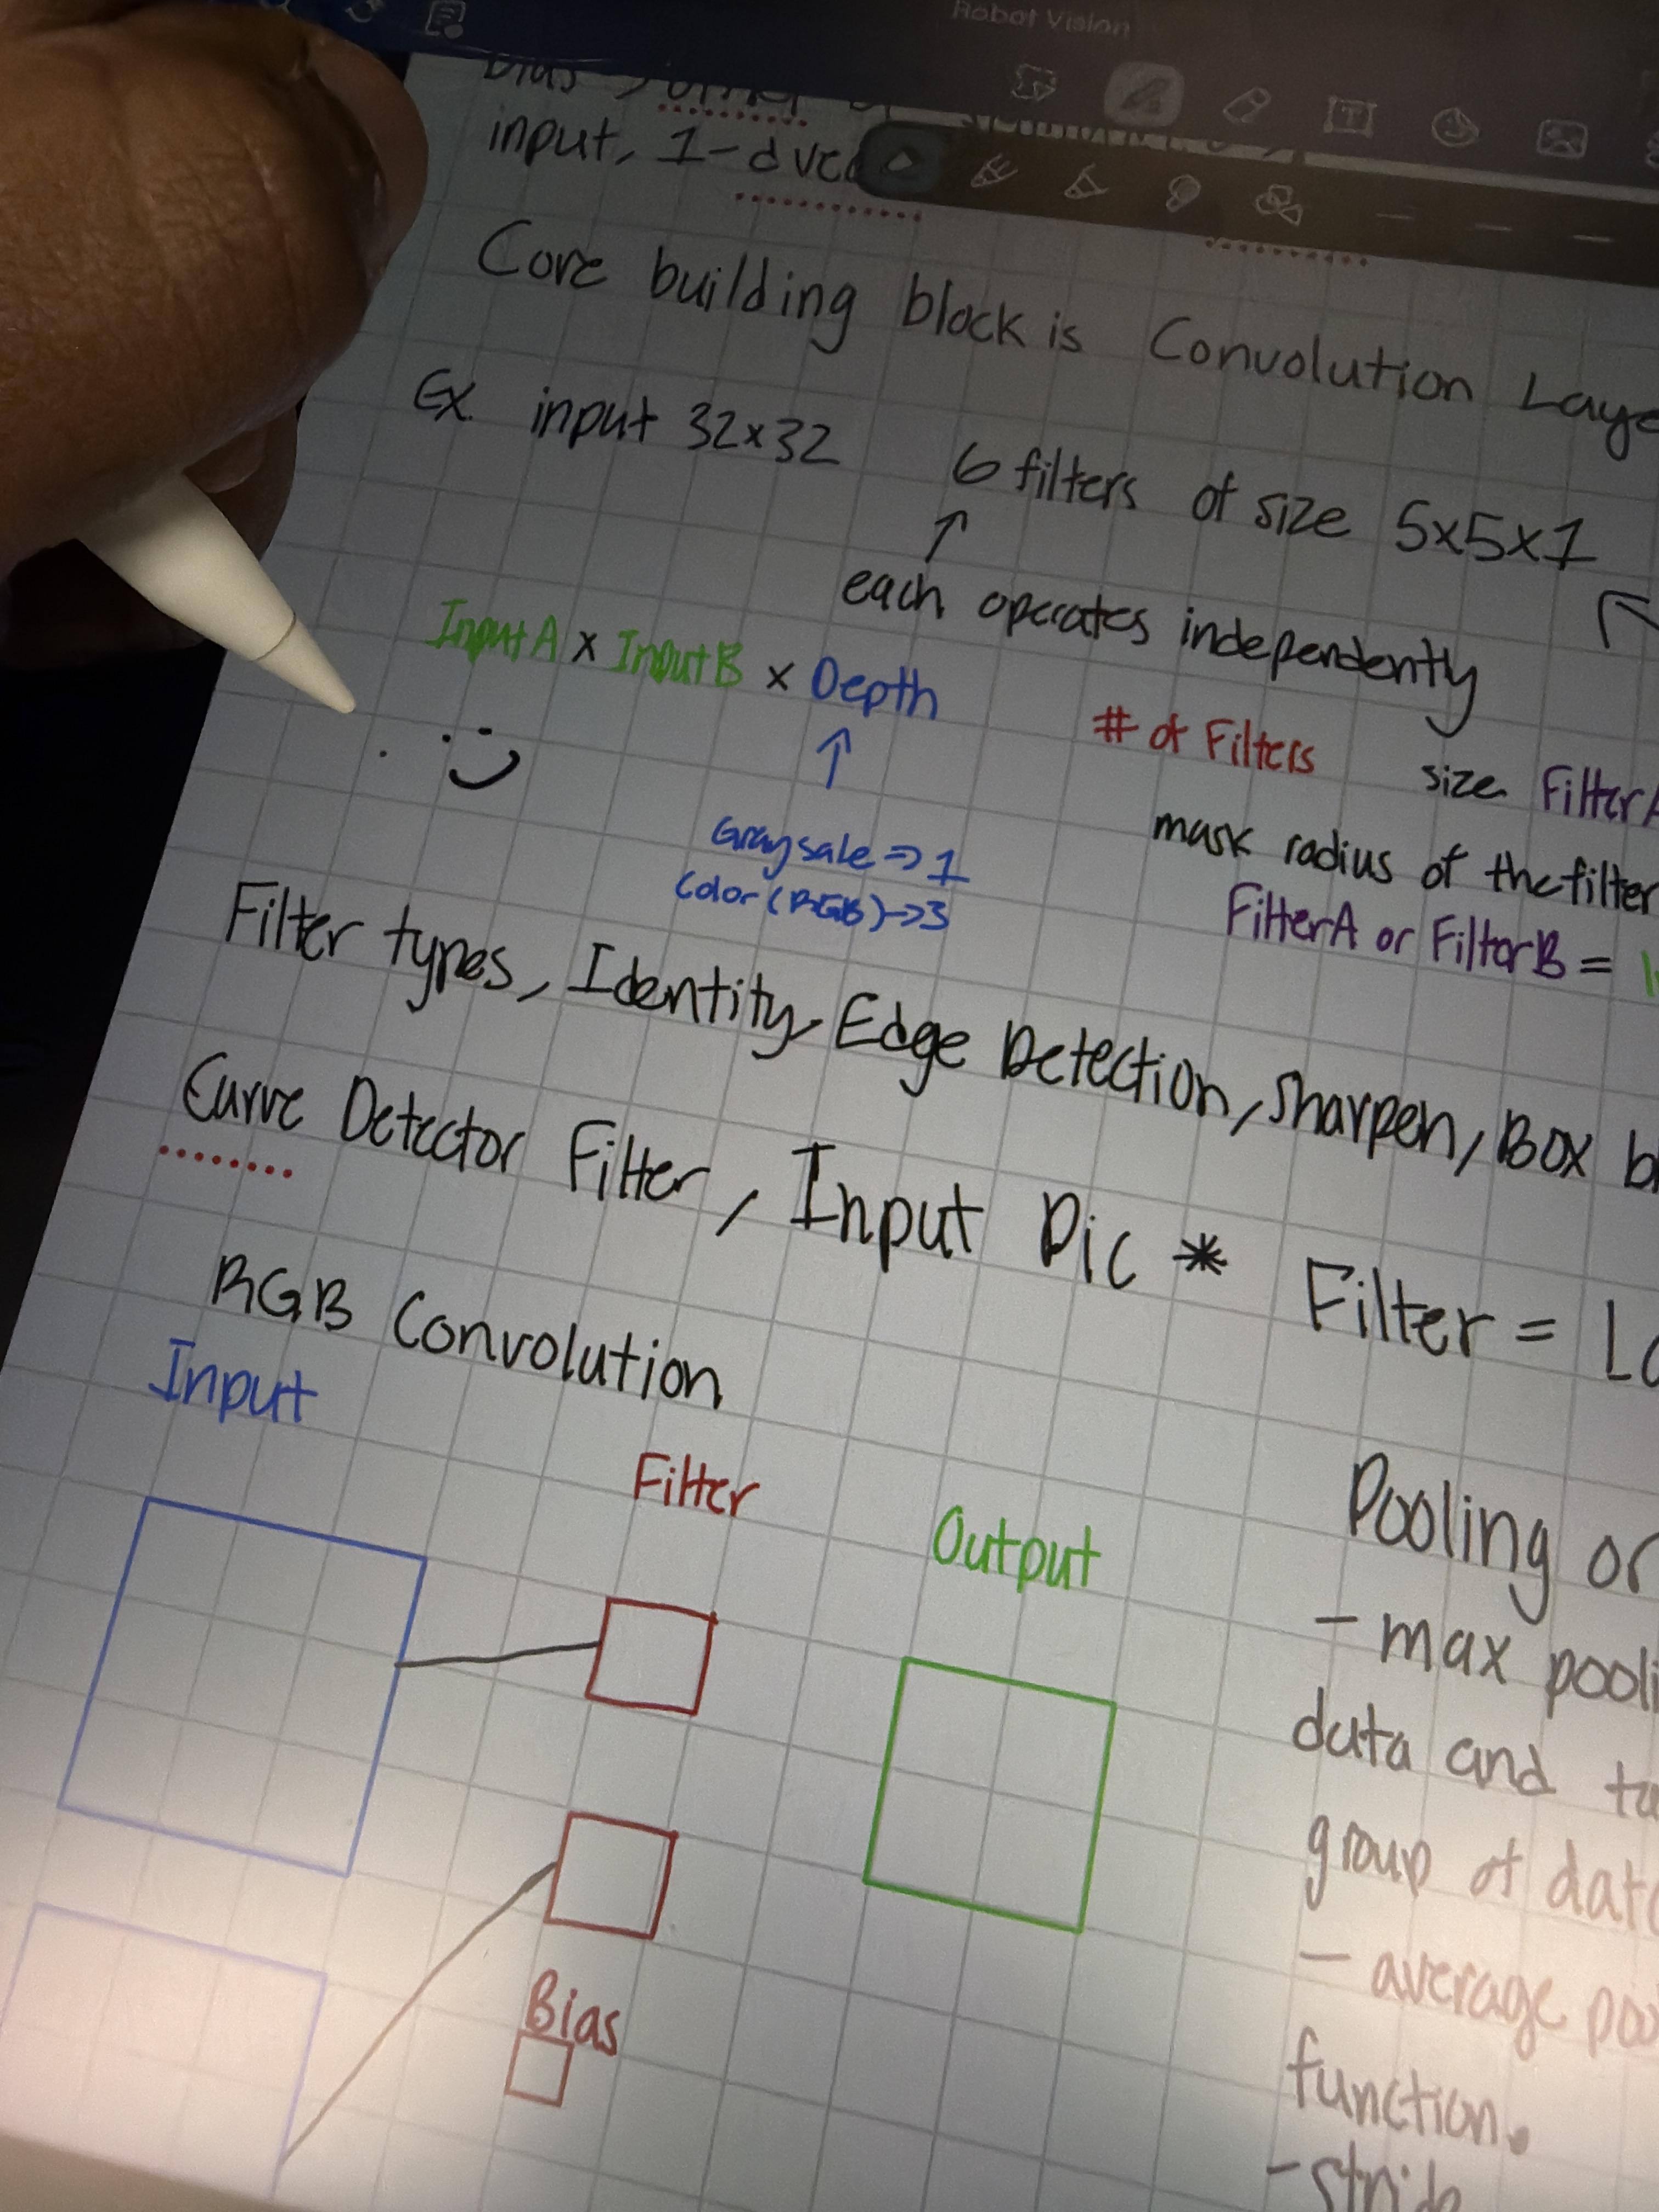 Robot Vision
input, 1-d
Core building block is Convolution
Ex. input 32x32
6 filters of size 5x5x1
↑
each operates independently
InputA x InputB x Depth
↑
# of Filters
size
Graysale => 1
Color (RGB) -> 3
mask radius of the filter
FilterA or FilterB =
Filter types, Identity, Edge Detection, Sharpen, Box
Curve Detector Filter, Input Pic * Filter =
RGB Convolution
Input
Filter
Output
Pooling or
- max
data and
group of
- average
function.
Bias